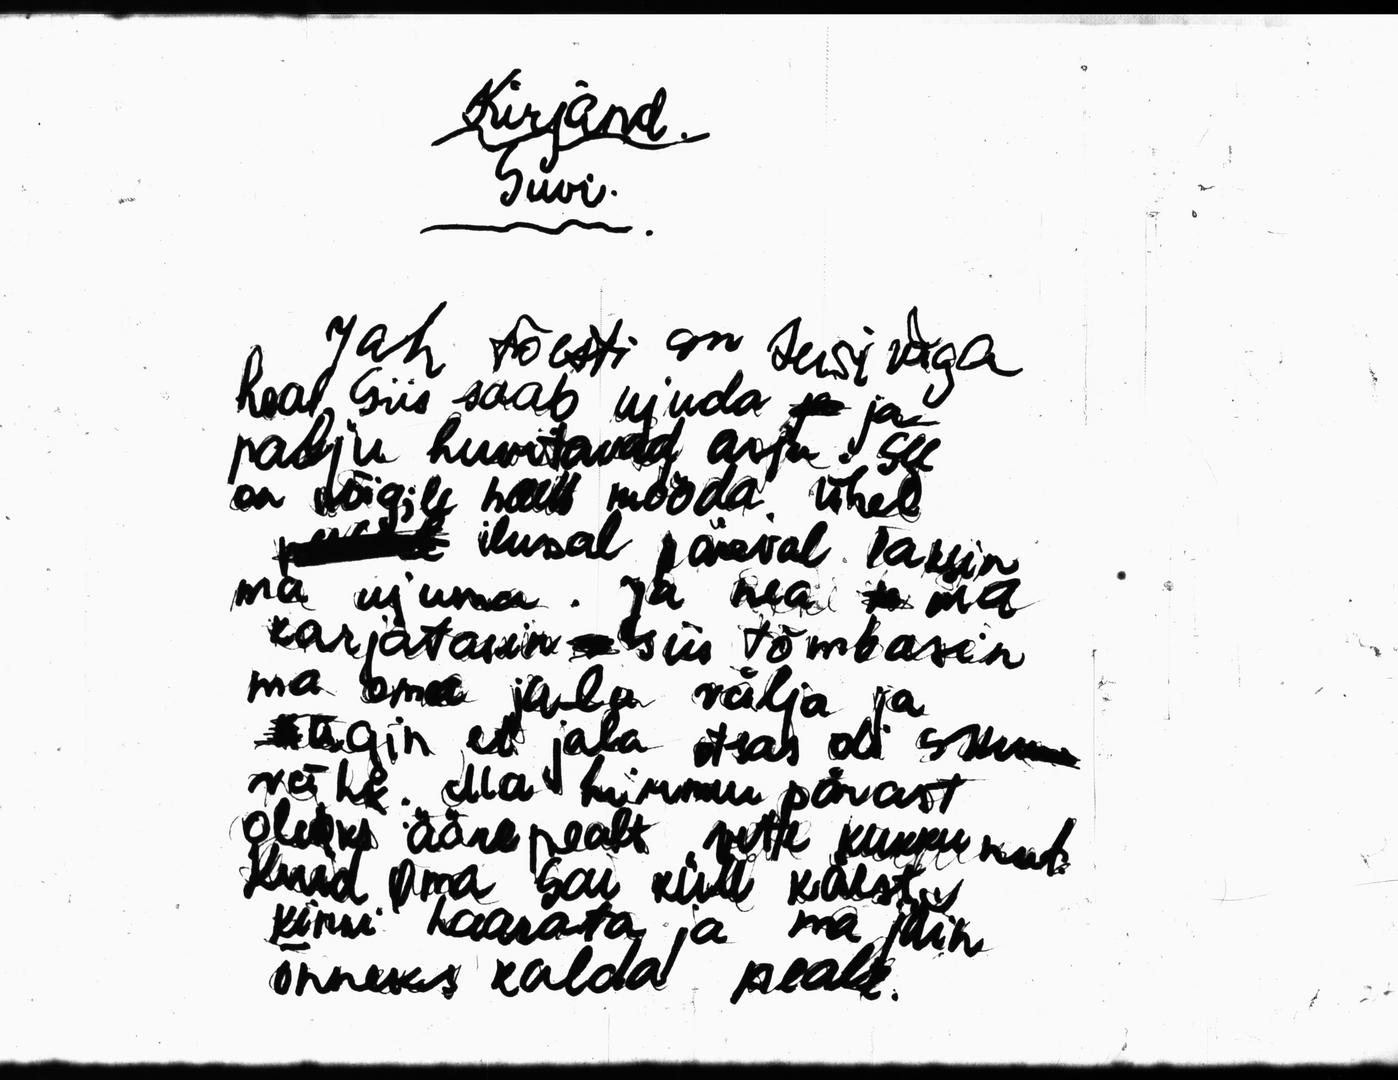 Kirjand.
Suvi.
Jah tõesti on suvi väga
hea. Siis saab ujuda ja
palju huvitavad asju. See
on kõigile mööda. Ühel
ilusal päeval läksin
ma ujuma. Ja hea ma
karjatasin siis tõmbasin
ma oma jala välja ja
nägin et jala otsas oli
vähk. Ma hirmu pärast
oleks äärepealt vette kukkunud.
Kuid ema sai küll käest
kinni haarata ja ma jäin
õnneks kalda peale.